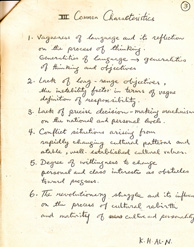 3
III Common Characteristics
1. Vagueness of language and its reflection
on the process of thinking.
Generalities of language → generalities
of thinking and objectives
2. Lack of long-range objectives,
the instability factor in terms of vague
definition of responsibility.
3. Lack of precise decision-making mechanism
on the national and personal levels.
4. Conflict situations arising from
rapidly changing cultural patterns and
stable, well-established cultural values.
5. Degree of willingness to change
personal and class interests as obstacles
toward progress.
6. The revolutionary struggle and its influence
on the process of cultural rebirth
and maturity of cultural personality
K.H.M.N.